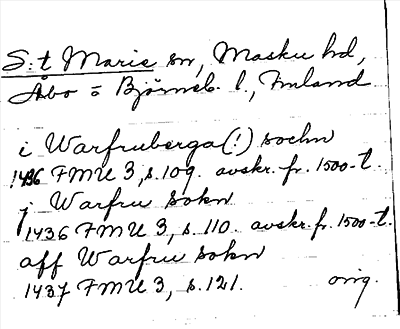 S:t Marie sn, Masku hd,
Åbo o Björneb. l., Finland
i Warfruberga (!) sochn
1436 FMU 3, s. 109. avskr. fr. 1500-t.
j Warfru sokn
1436 FMU 3, s. 110. avskr. fr. 1500-t.
aff Warfru sokn
1437 FMU 3, s. 121. orig.